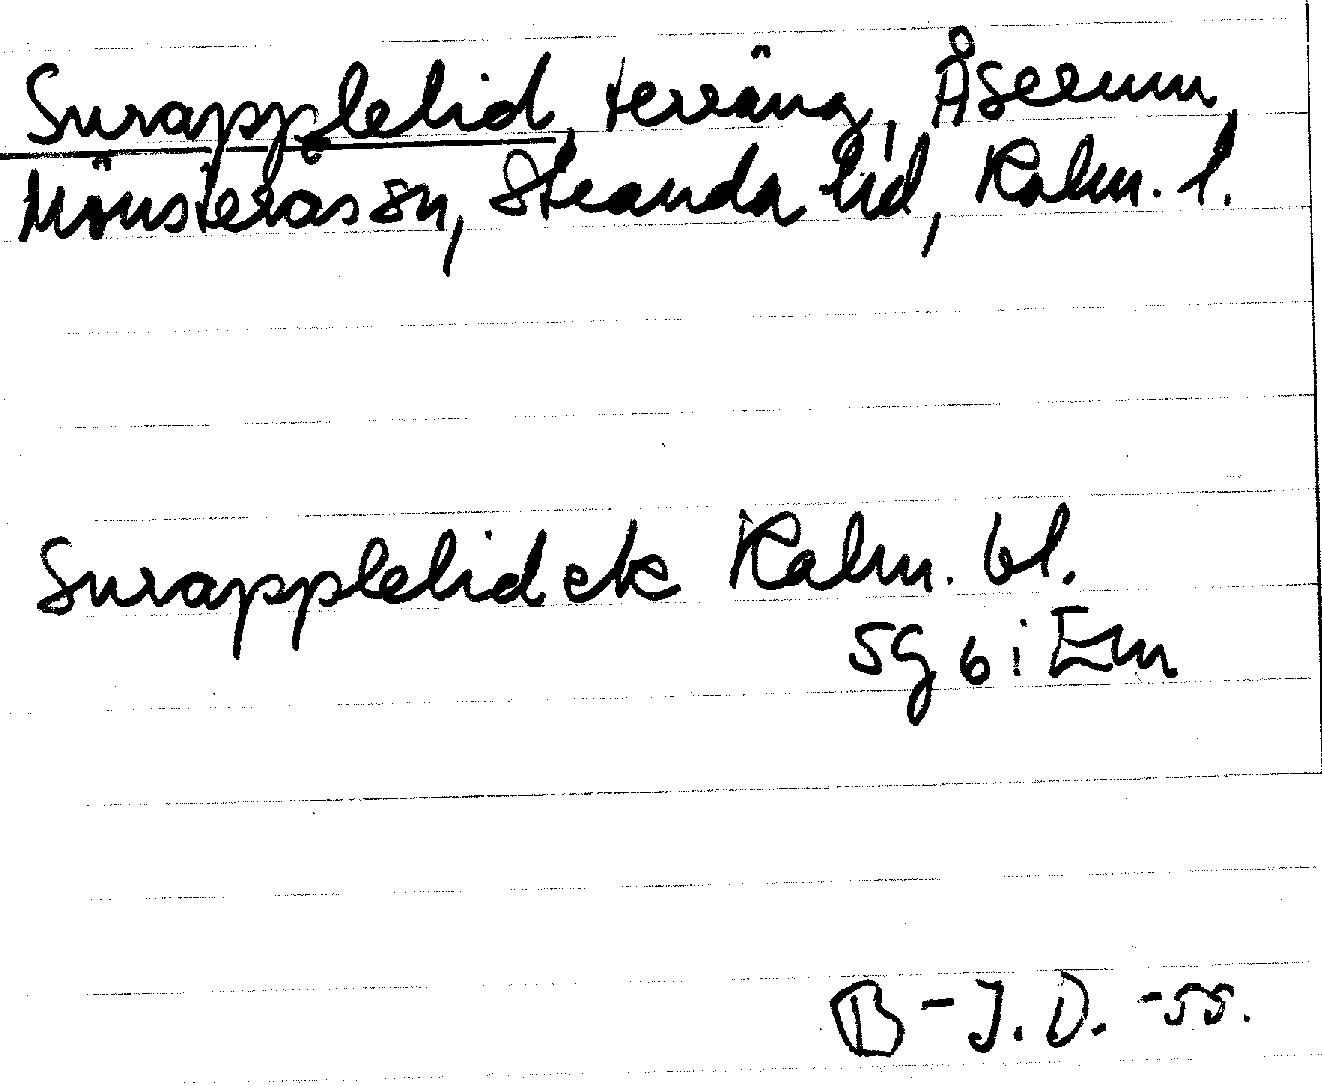 Surapplelid, terräng, Åserum,
Mönsterås sn, Stranda hd, Kalm. l.
Surapplelid ek Kalm. bl.
5g 6 i Em
B-J.D. -55.